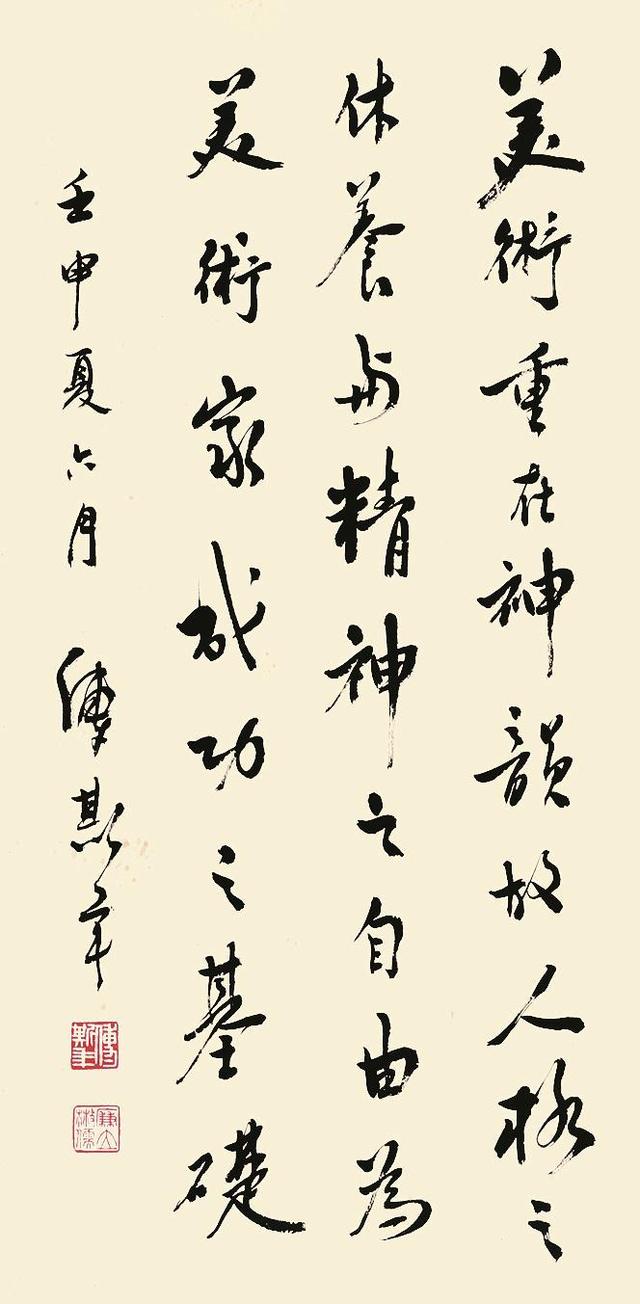 美術重在神韻故人格之
休養与精神之自由為
美術家成功之基礎
壬申夏六月 傅斯年
傅斯年